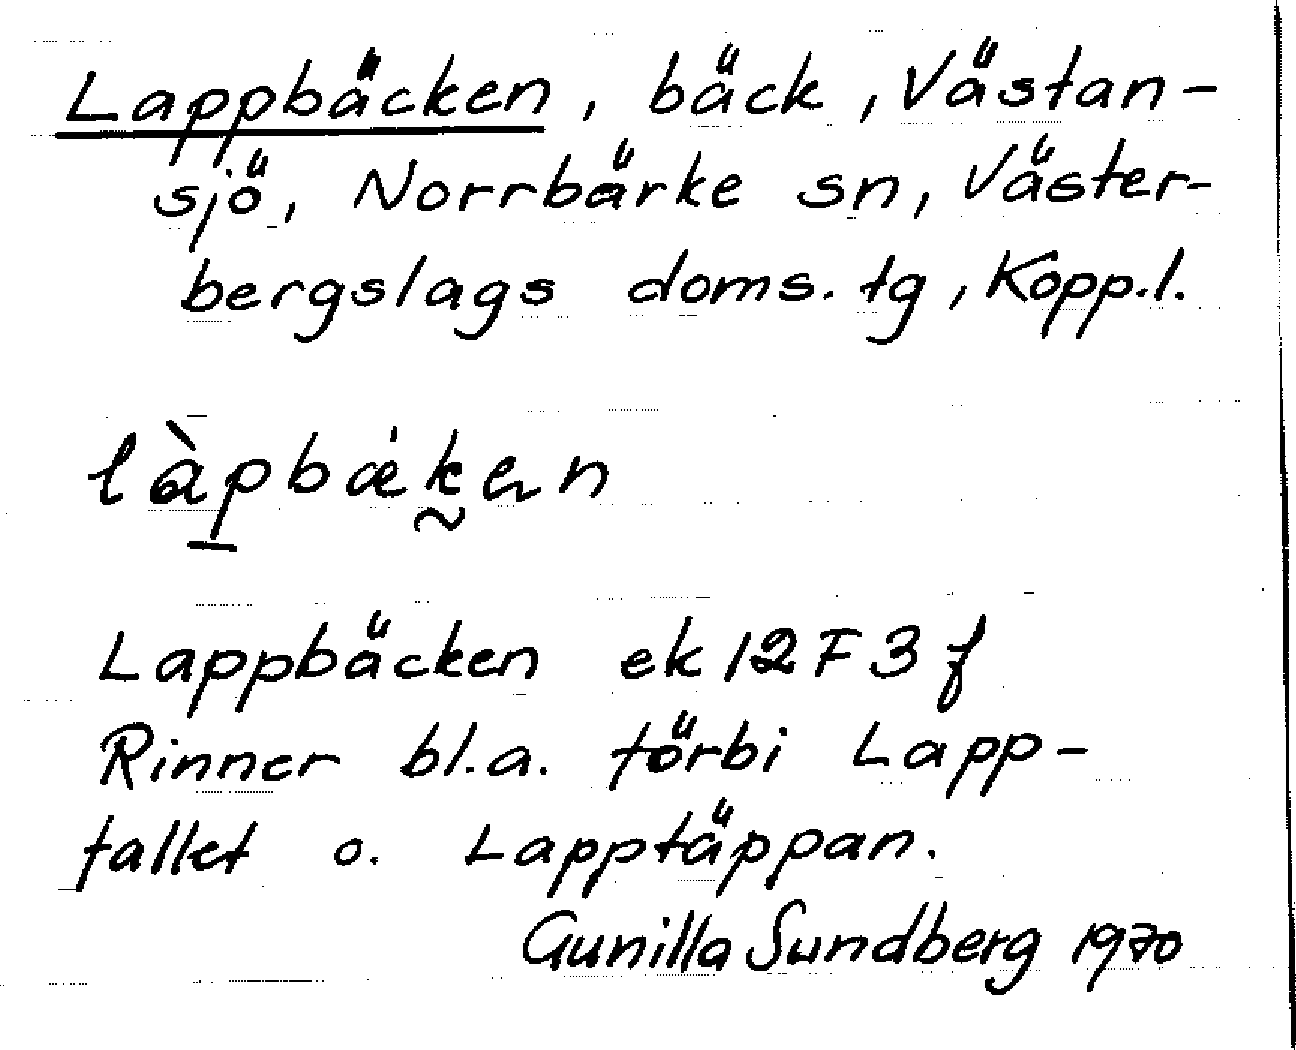 Lappbäcken, bäck, Västan-
sjö, Norrbärke sn, Väster-
bergslags doms. tg, Kopp.l.
làpbæ̇ken
Lappbäcken ek 12F3f
Rinner bl.a. förbi Lapp-
fallet o. Lapptäppan.
Gunilla Sundberg 1970